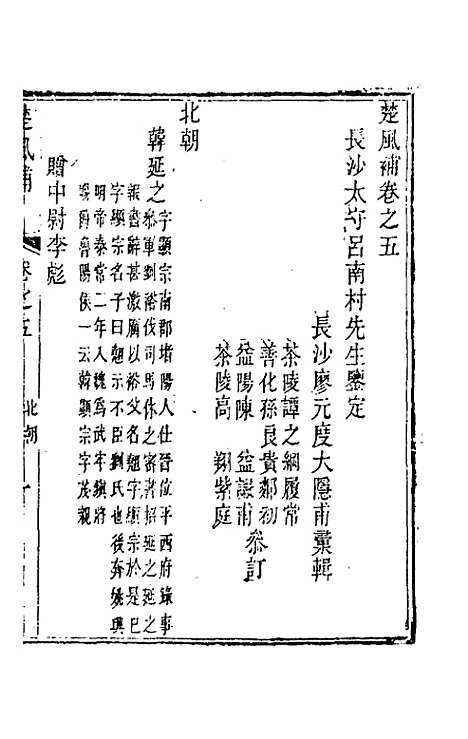 楚風補卷之五
長沙太守呂南村先生鑒定
長沙廖元度大隱甫彙輯
茶陵譚之綱履常
善化孫良貴鄰初
益陽陳 益謖甫
茶陵高 翔紫庭
叅訂
北朝
韓延之
字顯宗南郡堵陽人仕晉位平西府錄事
叅軍劉裕伐司馬休之密書招延之延之
報書辭甚激厲以裕父名翹字顯宗於是己
字顯宗名子曰翹示不臣劉氏也後奔姚興
明帝泰常二年入魏為武牢鎮將
賜爵魯陽侯一云韓顯宗字茂親
贈中尉李彪
楚風補
卷之五
北朝
一